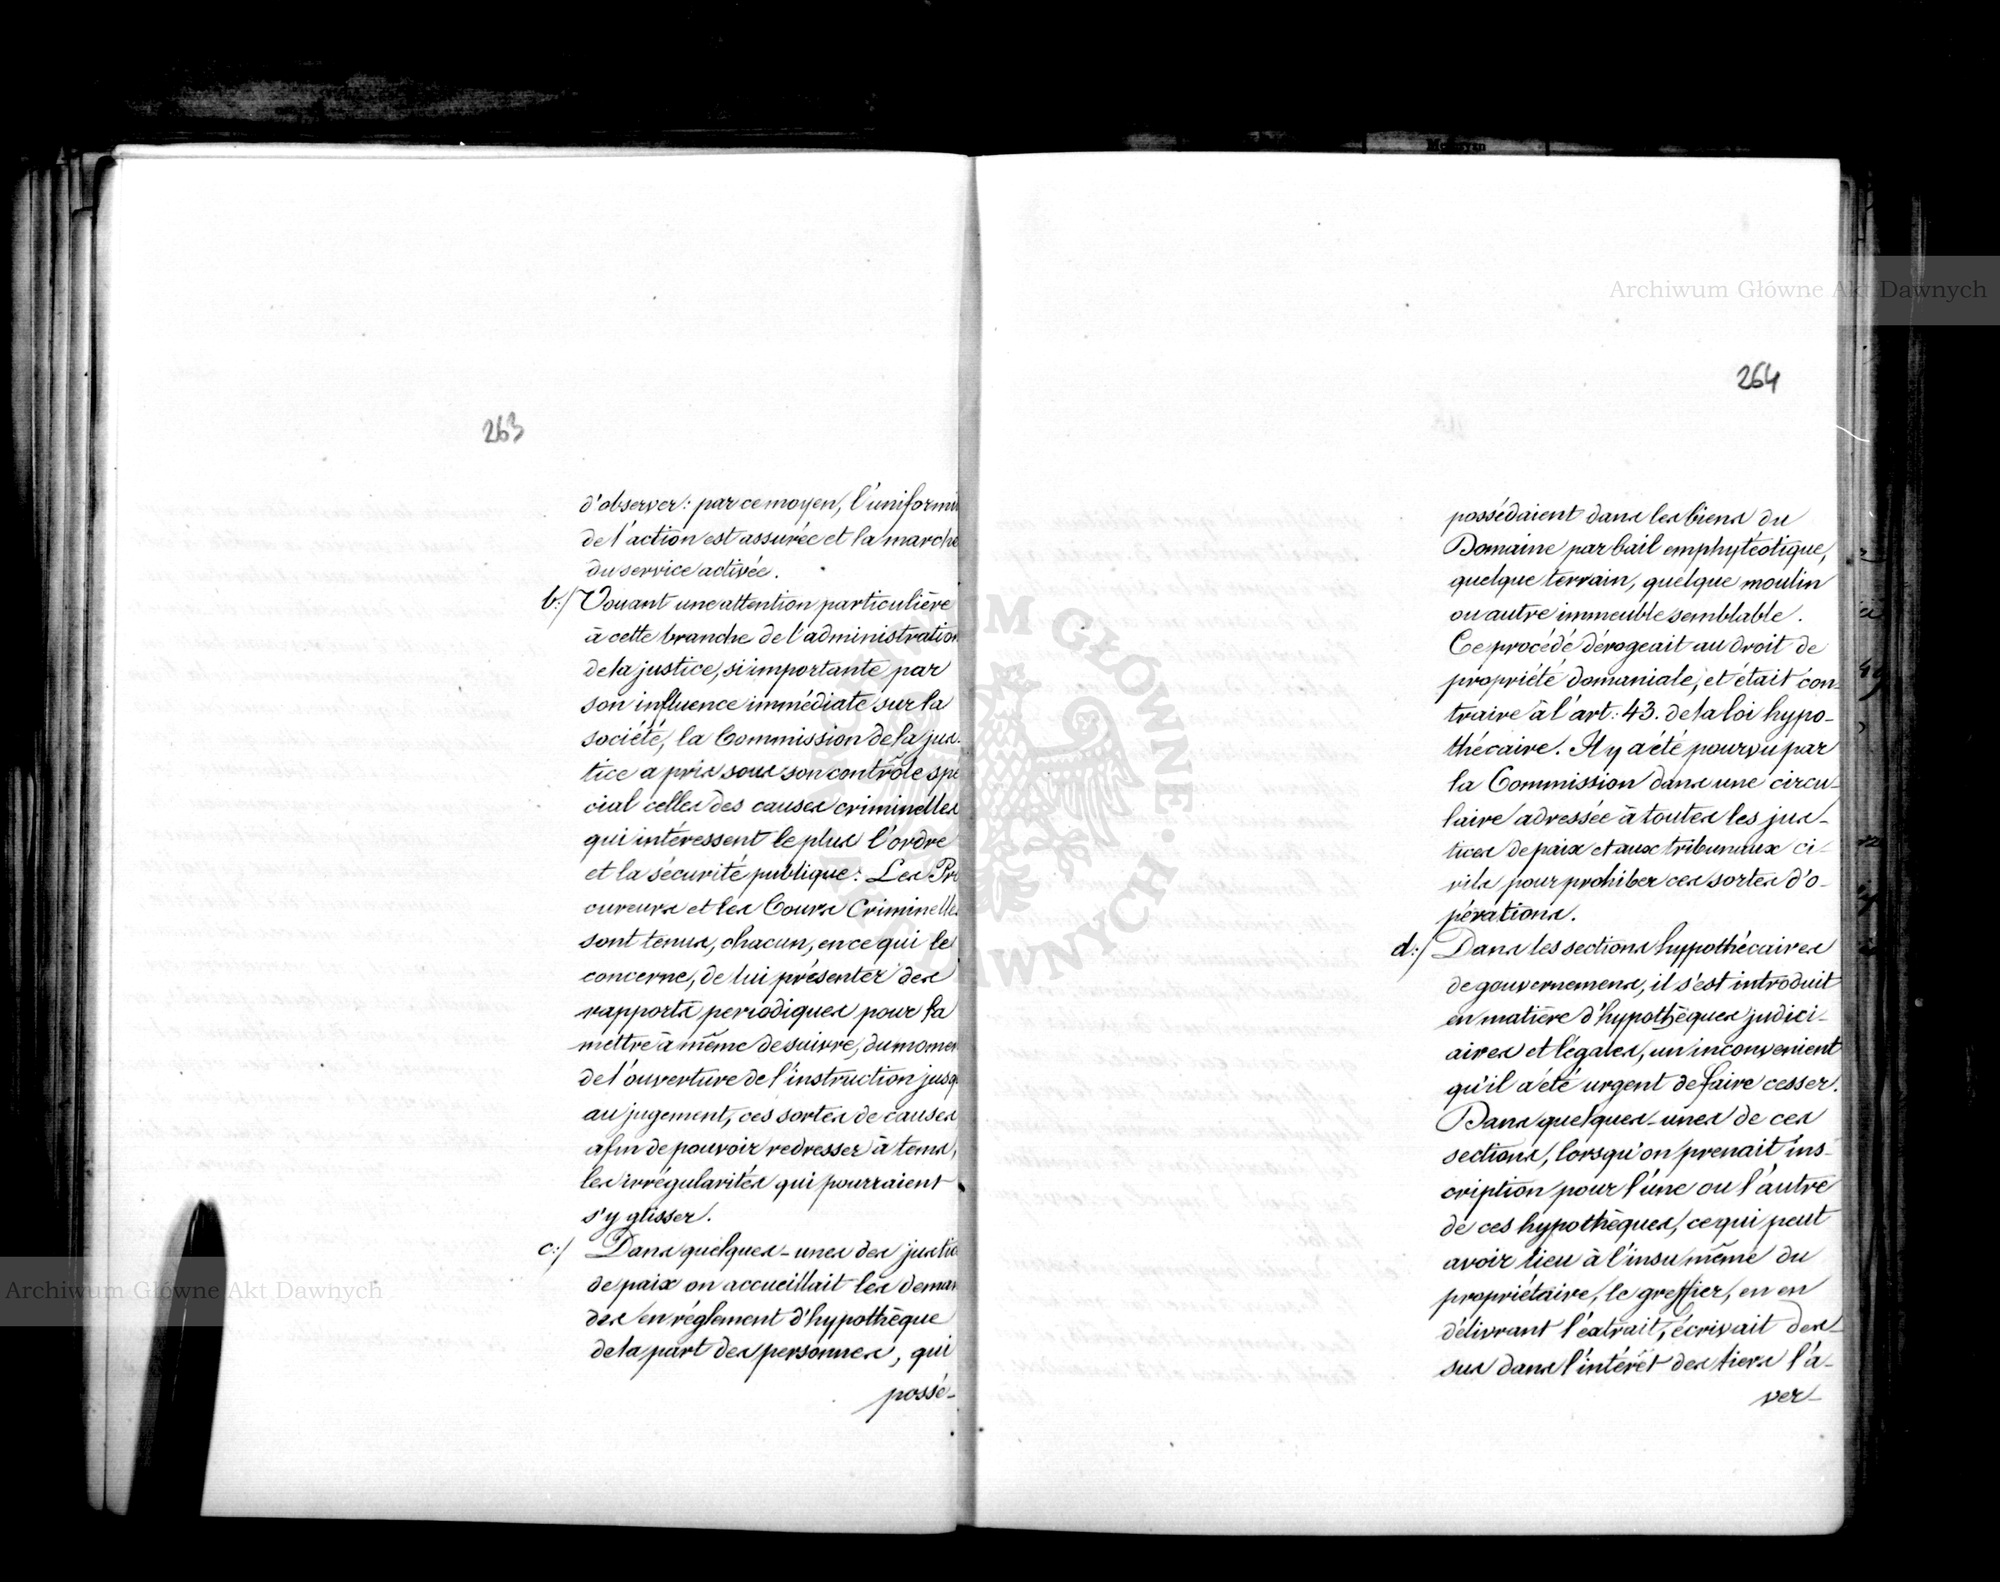 263
d'observer: par ce moyen, l'uniformi
de l'action est assurée et la marche
du service activée.
b:/ Vouant une attention particulière
à cette branche de l'administration
de la justice, si importante par
son influence immédiate sur la
société, la Commission de la jus-
tice a pris sous son contrôle spé
cial celles des causes criminelles
qui intéressent le plus l'ordre
et la sécurité publique: Les Pro
cureurs et les Cours Criminelles
sont tenus, chacun, en ce qui le
concerne, de lui présenter des
rapports periodiques pour la
mettre à même de suivre, du momen
de l'ouverture de l'instruction jusq
au jugement, ces sortes de causes
afin de pouvoir redresser à tems,
les irrégularités qui pourraient
s'y glisser.
c:/ Dans quelques-unes des justic
de paix on accueillait les deman
des en réglement d'hypothèque
de la part des personnes, qui
possé-
264
possédaient dans les biens du
Domaine par bail emphytéotique,
quelque terrain, quelque moulin
ou autre immeuble semblable.
Ce procédé dérogeait au droit de
propriété domaniale, et était con-
traire à l'art: 43. de la loi hypo-
thécaire. Il y a été pourvu par
la Commission dans une circu-
laire adressée à toutes les jus-
tices de paix et aux tribunaux ci-
vils pour prohiber ces sortes d'o-
pérations.
d:/ Dans les sections hypothécaires
de gouvernemens, il s'est introduit
en matière d'hypothèques judici-
aires et légales, un inconvenient
qu'il a été urgent de faire cesser.
Dans quelques-unes de ces
sections, lorsqu'on prenait ins-
cription pour l'une ou l'autre
de ces hypothèques, ce qui peut
avoir lieu à l'insu même du
propriétaire, le greffier, en en
délivrant l'extrait, écrivait des-
sus dans l'intérêt des tiers l'a-
ver-
Archiwum Główne Akt Dawnych
Archiwum Główne Akt Dawnych
ARCHIWUM GŁÓWNE AKT DAWNYCH